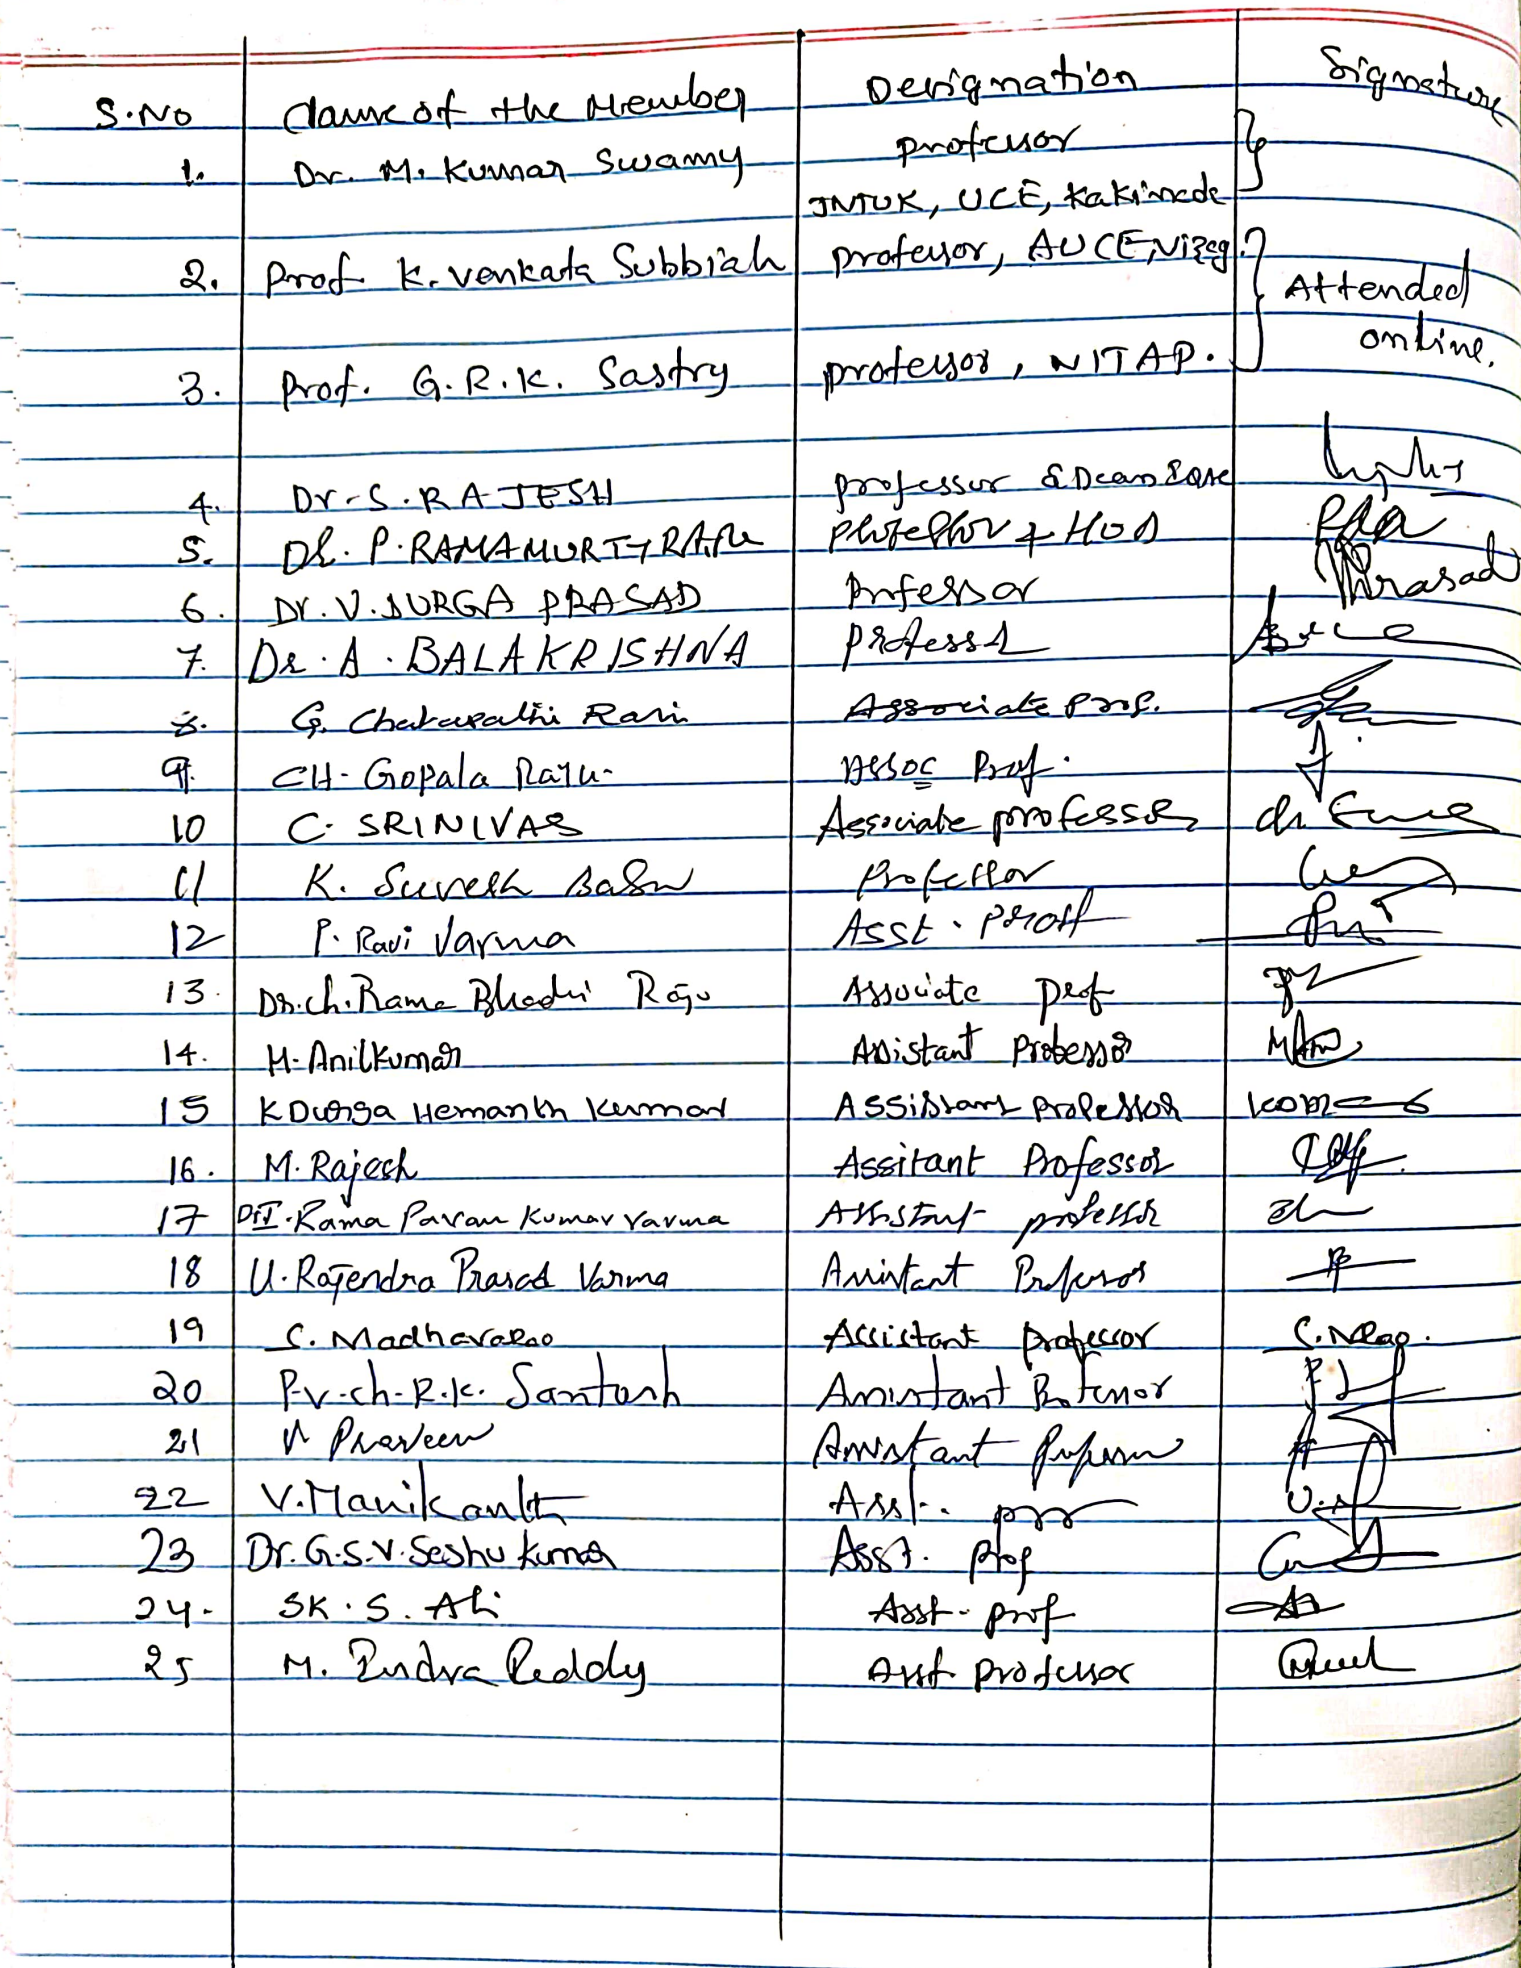 S.No Name of the Member Designation Signature
1. Dr. M. Kumar Swamy professor
JNTUK, UCE, Kakinada
2. Prof K. Venkata Subbiah professor, AUCE, Vizag. Attended
online.
3. Prof. G.R.K. Sastry professor, NITAP.
4. Dr. S. RAJESH professor & Dean
5. Dr. P. RAMAMURTY RAJU Professor & HOD
6. Dr. V. DURGA PRASAD Professor Prasad
7. Dr. A. BALAKRISHNA Professor
8. G. Chakravarthi Ravi Associate Prof.
9. CH. Gopala Raju Assoc Prof.
10 C. SRINIVAS Associate professor
11 K. Suresh Babu Professor
12 P. Ravi Varma Asst. Prof
13. Dr. ch. Rama Bhadri Raju Associate prof
14. M. Anilkumar Assistant Professor
15 K Durga Hemanth Kumar Assistant professor
16. M. Rajesh Assitant Professor
17 Dr. I. Rama Pavan Kumar Varma Assistant professor
18 U. Rajendra Prasad Varma Assistant Professor
19 S. Madhavarao Assistant professor S. MRao.
20 P.V.ch.R.K. Santosh Assistant Professor
21 Praveen Assistant Professor
22 V. Manikanth Asst.
23 Dr. G.S.V. Seshu Kumar Asst. Prof
24. SK. S. Ali Asst. prof
25 M. Indra Reddy Asst professor